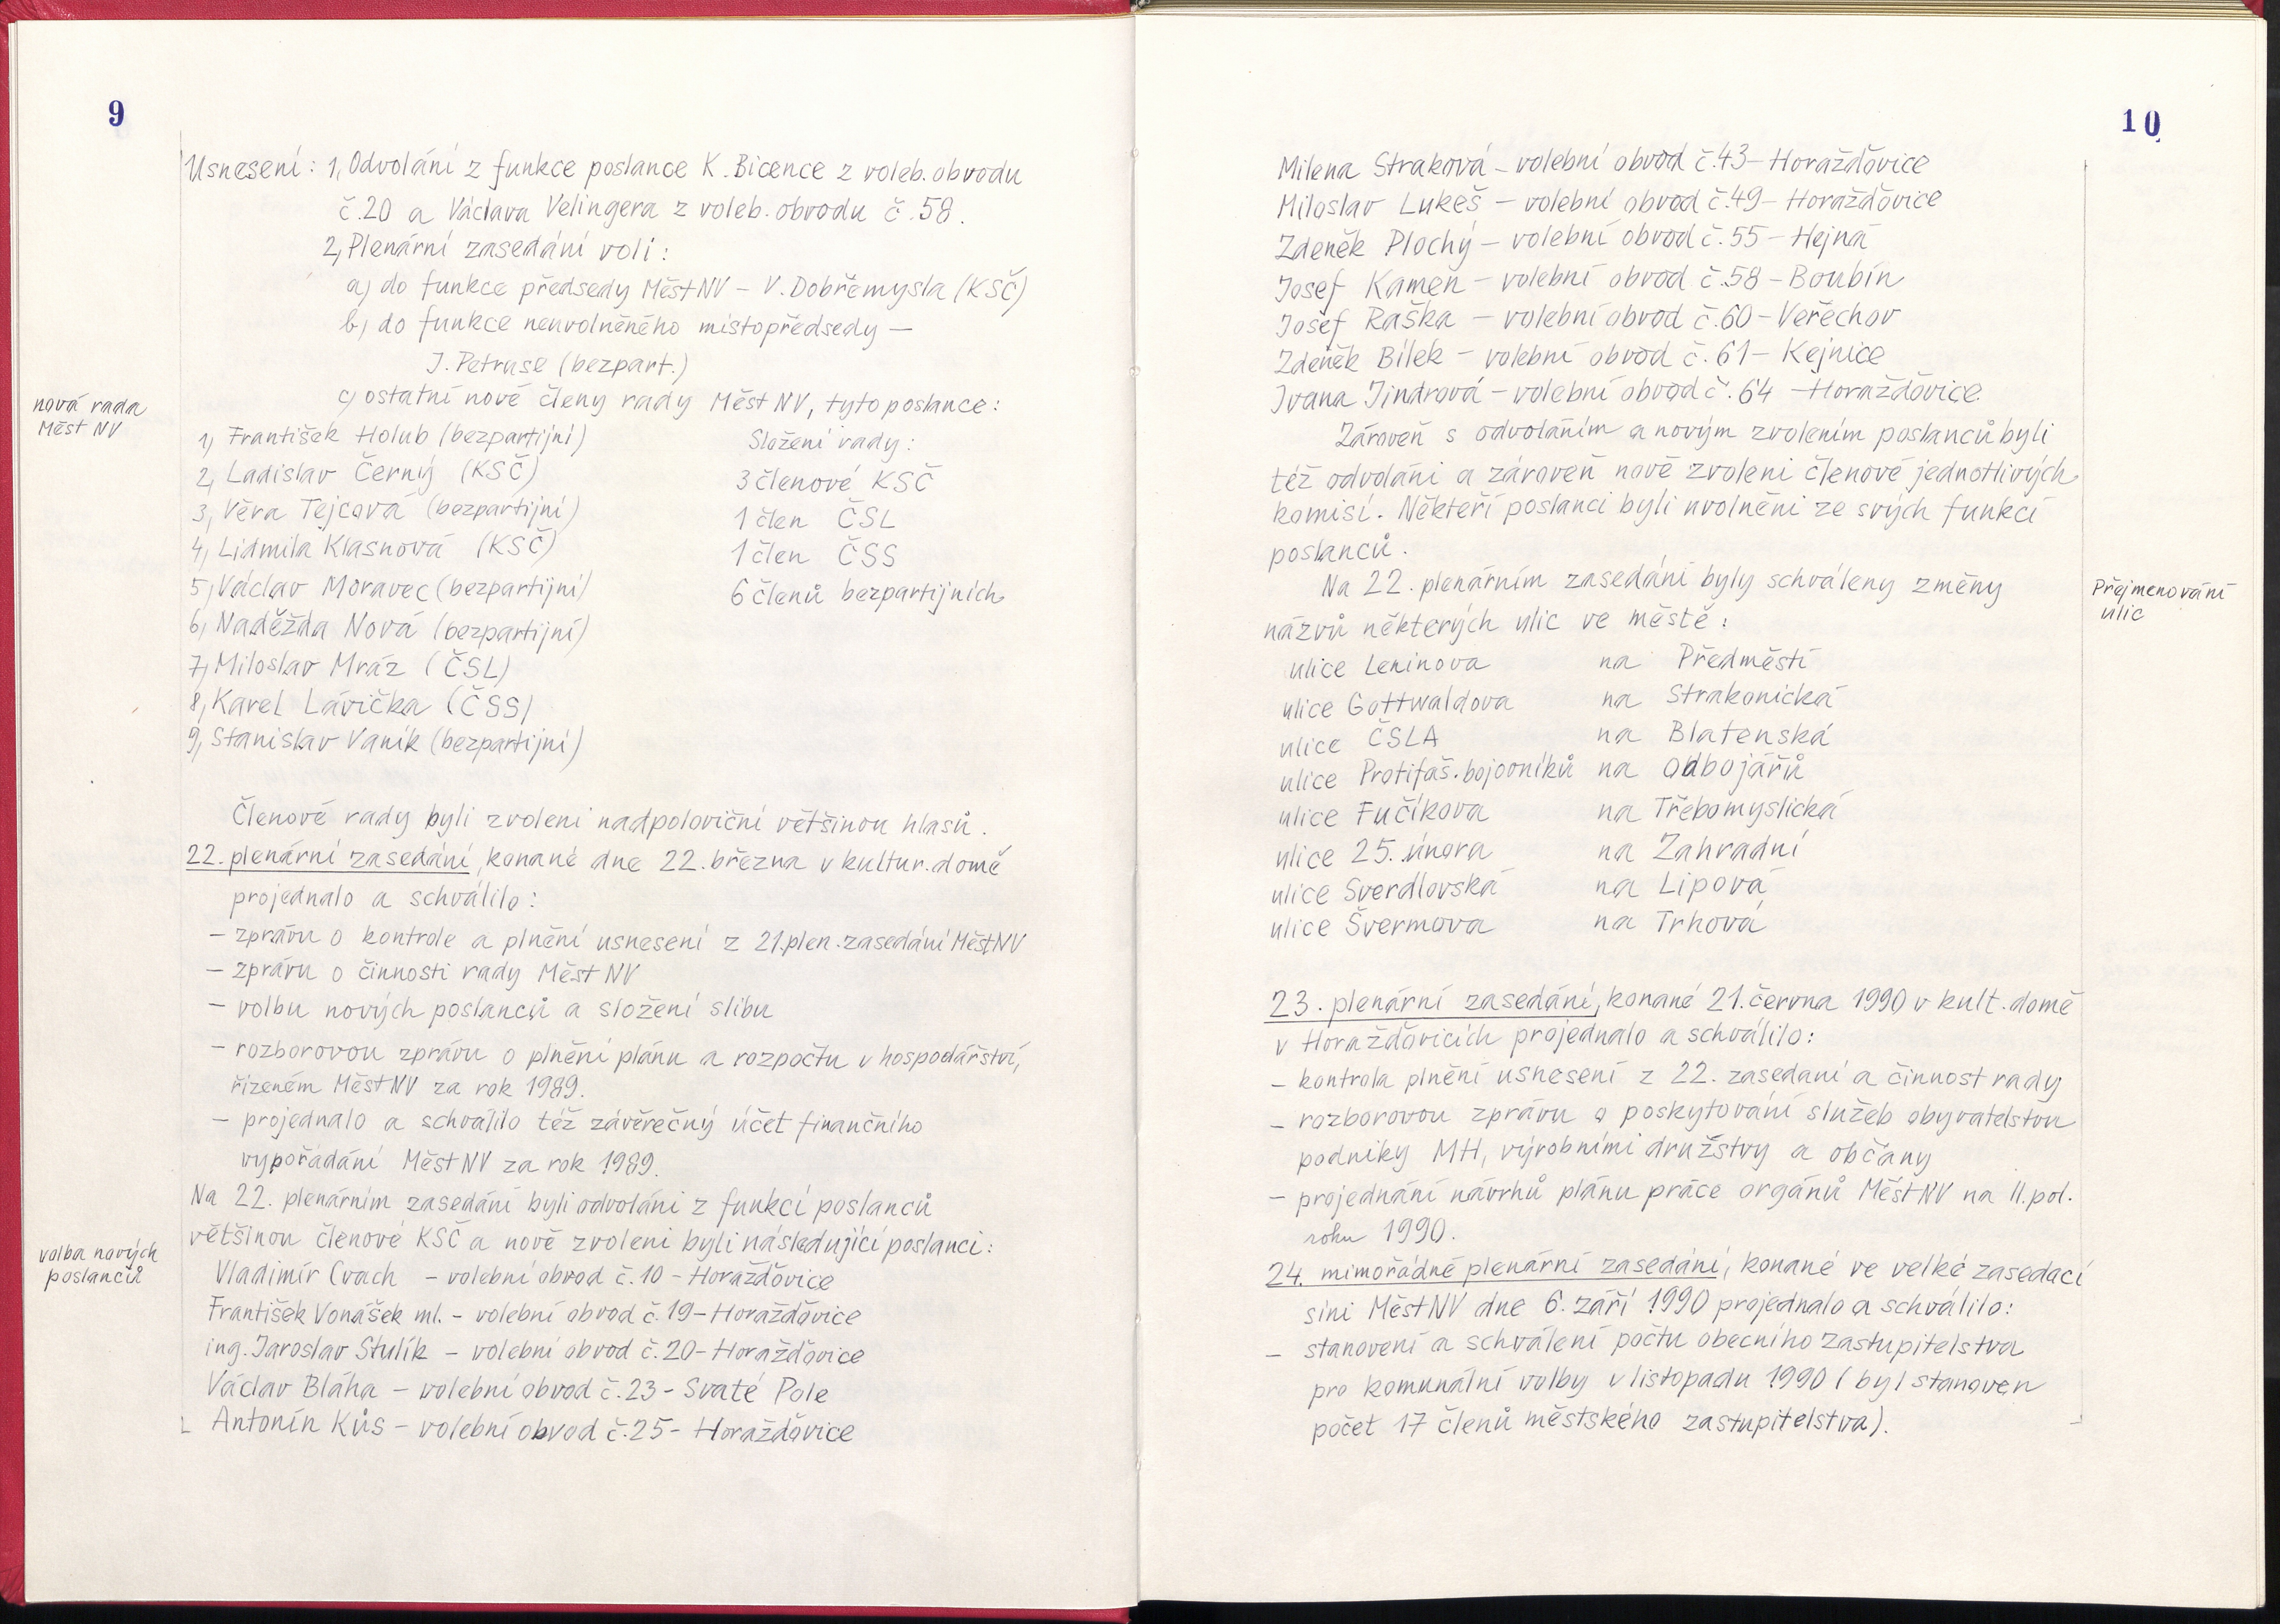 9
Usnesení: 1, Odvolání z funkce poslance K. Bicence z voleb. obvodu
č. 20 a Václava Velingera z voleb. obvodu č. 58.
2, Plenární zasedání volí:
a) do funkce předsedy MěstNV – V. Dobřemysla (KSČ)
b) do funkce neuvolněného místopředsedy –
J. Petruse (bezpart.)
c) ostatní nové členy rady Měst NV, tyto poslance:
nová rada
Měst NV
1, František Holub (bezpartijní)
2, Ladislav Černý (KSČ)
3, Věra Tejcová (bezpartijní)
4, Lidmila Klasnová (KSČ)
5, Václav Moravec (bezpartijní)
6, Naděžda Nová (bezpartijní)
7, Miloslav Mráz (ČSL)
8, Karel Lávička (ČSS)
9, Stanislav Vaník (bezpartijní)
Složení rady:
3 členové KSČ
1 člen ČSL
1 člen ČSS
6 členů bezpartijních
Členové rady byli zvoleni nadpoloviční většinou hlasů.
22. plenární zasedání, konané dne 22. března v kultur. domě
projednalo a schválilo:
– zprávu o kontrole a plnění usnesení z 21. plen. zasedání MěstNV
– zprávu o činnosti rady Měst NV
– volbu nových poslanců a složení slibu
– rozborovou zprávu o plnění plánu a rozpočtu v hospodářství,
řízeném MěstNV za rok 1989.
– projednalo a schválilo též závěrečný účet finančního
vypořádání MěstNV za rok 1989.
Na 22. plenárním zasedání byli odvoláni z funkcí poslanců
většinou členové KSČ a nově zvoleni byli následující poslanci:
volba nových
poslanců
Vladimír Cvach – volební obvod č. 10 – Horažďovice
František Vonášek ml. – volební obvod č. 19 – Horažďovice
ing. Jaroslav Stulík – volební obvod č. 20 – Horažďovice
Václav Bláha – volební obvod č. 23 – Svaté Pole
Antonín Kůs – volební obvod č. 25 – Horažďovice
10
Milena Straková – volební obvod č. 43 – Horažďovice
Miloslav Lukeš – volební obvod č. 49 – Horažďovice
Zdeněk Plochý – volební obvod č. 55 – Hejná
Josef Kameň – volební obvod č. 58 – Boubín
Josef Raška – volební obvod č. 60 – Veřechov
Zdeněk Bílek – volební obvod č. 61 – Kejnice
Ivana Jindrová – volební obvod č. 64 – Horažďovice
Zároveň s odvoláním a novým zvolením poslanců byli
též odvoláni a zároveň nově zvoleni členové jednotlivých
komisí. Někteří poslanci byli uvolněni ze svých funkcí
poslanců.
Na 22. plenárním zasedání byly schváleny změny
názvů některých ulic ve městě:
Přejmenování
ulic
ulice Leninova na Předměstí
ulice Gottwaldova na Strakonická
ulice ČSLA na Blatenská
ulice Protifaš. bojovníků na Odbojářů
ulice Fučíkova na Třebomyslická
ulice 25. února na Zahradní
ulice Sverdlovská na Lipová
ulice Švermova na Trhová
23. plenární zasedání, konané 21. června 1990 v kult. domě
v Horažďovicích projednalo a schválilo:
– kontrola plnění usnesení z 22. zasedání a činnost rady
– rozborovou zprávu o poskytování služeb obyvatelstvu
podniky MH, výrobními družstvy a občany
– projednání návrhů plánu práce orgánů MěstNV na II. pol.
roku 1990.
24. mimořádné plenární zasedání, konané ve velké zasedací
síni MěstNV dne 6. září 1990 projednalo a schválilo:
– stanovení a schválení počtu obecního zastupitelstva
pro komunální volby v listopadu 1990 (byl stanoven
počet 17 členů městského zastupitelstva).